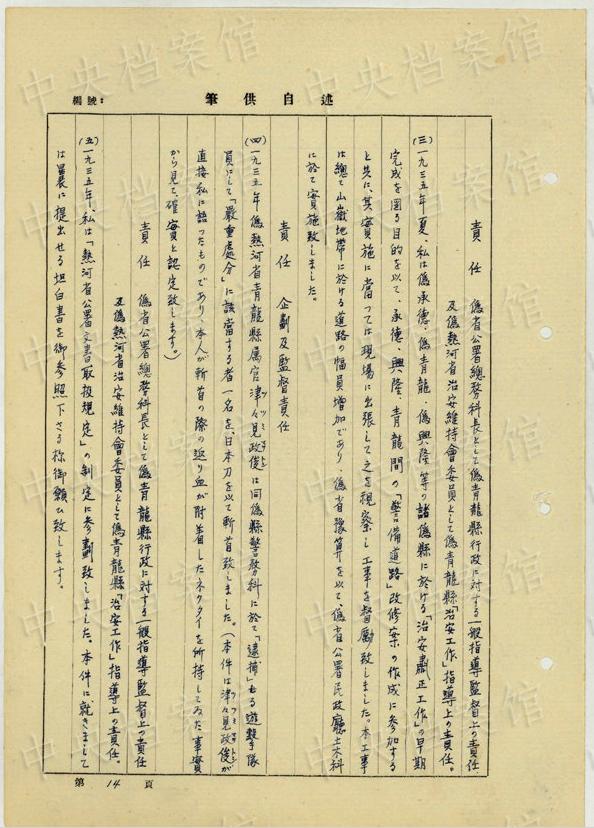 述自供筆
編號：
責任　偽省公署總務科長として偽青龍縣行政に対する一般指導監督上の責任
及偽熱河省治安維持會委員として偽青龍縣「治安工作」指導上の責任。
(三)一九三五年夏、私は偽承德、偽青龍、偽興隆等の諸偽縣に於ける「治安肅正工作」の早期
完成を図る目的を以て、承德、興隆、青龍間の「警備道路」改修案の作成に参加する
と共に、其実施に当つては現場に出張して之を視察し工事を督励致しました。本工事
は總て山嶽地帶に於ける道路の幅員増加であり、偽省豫算を以て、偽省公署民政廳土木科
に於て実施致しました。
責任　企劃及監督責任
(四)一九三五年偽熱河省青龍縣属官津々見政俊は同偽縣警務科に於て「逮捕」せる遊撃隊
員にして「嚴重處分」に該当する者一名を日本刀を以て斬首致しました。(本件は津々見政俊が
直接私に語つたものであり、本人が斬首の際の返り血が附着したネクタイを所持しゐた事実
から見て確実と認定致します。)
責任　偽省公署總務科長として偽青龍縣行政に対する一般指導監督上の責任
及偽熱河省治安維持會委員として偽青龍縣「治安工作」指導上の責任。
(五)一九三五年、私は「熱河省公署文書取扱規定」の制定に参劃致しました。本件に就きまして
は曩に提出せる坦白書を御参照下さる様御願ひ致します。
第14頁
中央档案馆